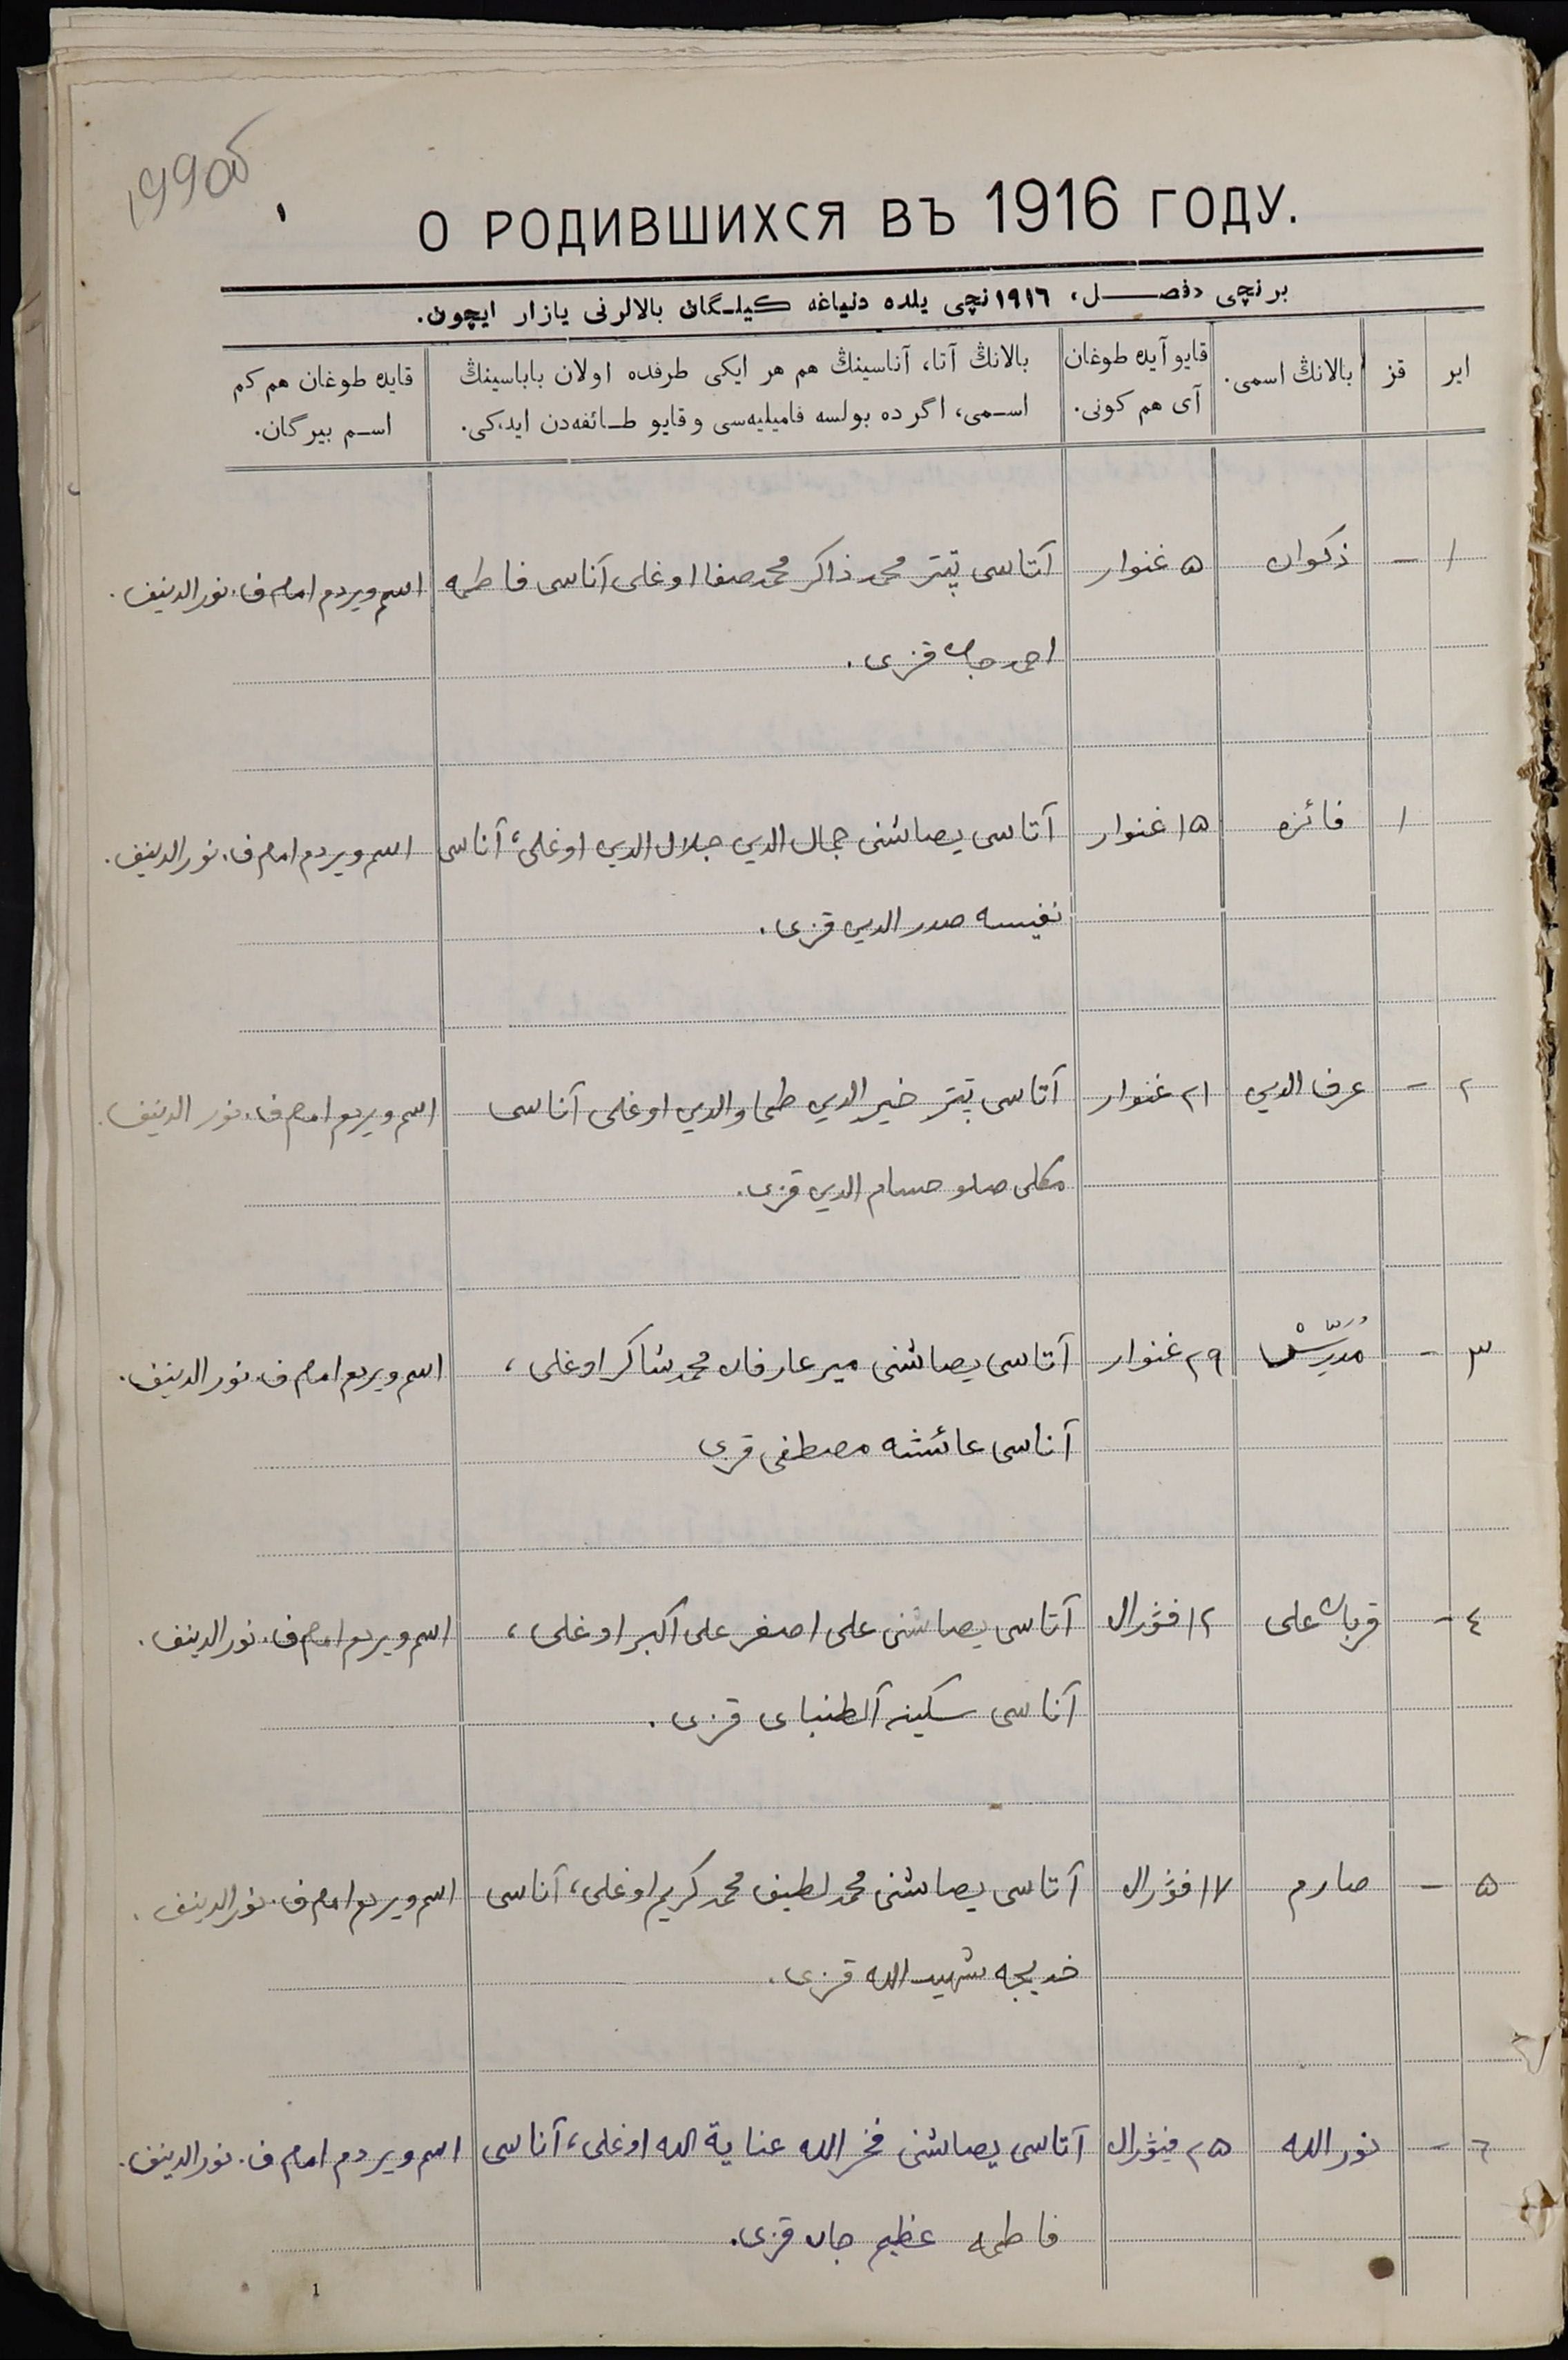 199об
О РОДИВШИХСЯ ВЪ 1916 ГОДУ.
برنچی «فصــل»، ١٩١٦نچی یلده دنیاغه كیلـگان بالالرنی یازار ایچون.
ایر
قز
بالانڭ اسمی.
قایو آیده طوغان
آی هم كونی.
بالانڭ آتا، آناسینڭ هم هر ایكی طرفده اولان باباسینڭ
اسـمی، اگر ده بولسه فامیلیه‌سی و قایو طـائفه‌دن ایدكی.
قایده طوغان هم كم
اسـم بیرگان.
١ – ذكوان ۵ غنوار آتاسی تپتر محمد ذاكر محمد صفا اوغلی آناسی فاطمه اسم ویردم امام ف. نورالدینف.
احمد جان قزی.
١ فائزه ١۵ غنوار آتاسی یصاشنی جمال الدین جلال الدین اوغلی، آناسی اسم ویردم امام ف. نورالدینف.
نفیسه صدر الدین قزی.
٢ – عرف الدین ٢١ غنوار آتاسی تپتر خیر الدین الدین اوغلی آناسی اسم ویردم امام ف. نور الدینف.
صلو حسام الدین قزی.
٣ – مُدَرِّسْ ٢٩ غنوار آتاسی یصاشنی میر عارفان محمد شاكر اوغلی، اسم ویردم امام ف. نور الدینف.
آناسی عائشه مصطفی قزی
٤ – قربان علی ١٢ فؤرال آتاسی یصاشنی علی اصغر علی اكبر اوغلی، اسم ویردم امام ف. نورالدینف.
آناسی سكینه آلطنبای قزی.
۵ – صارم ١٧ فؤرال آتاسی یصاشنی محمد لطیف محمد كریم اوغلی، آناسی اسم ویردم امام ف. نورالدینف.
خدیجه شهید الله قزی.
٦ – نور الله ٢۵ فیؤرال آتاسی یصاشنی فخر الله عنایة الله اوغلی، آناسی اسم ویردم امام ف. نورالدینف.
فاطمه عظیم جان قزی.
1